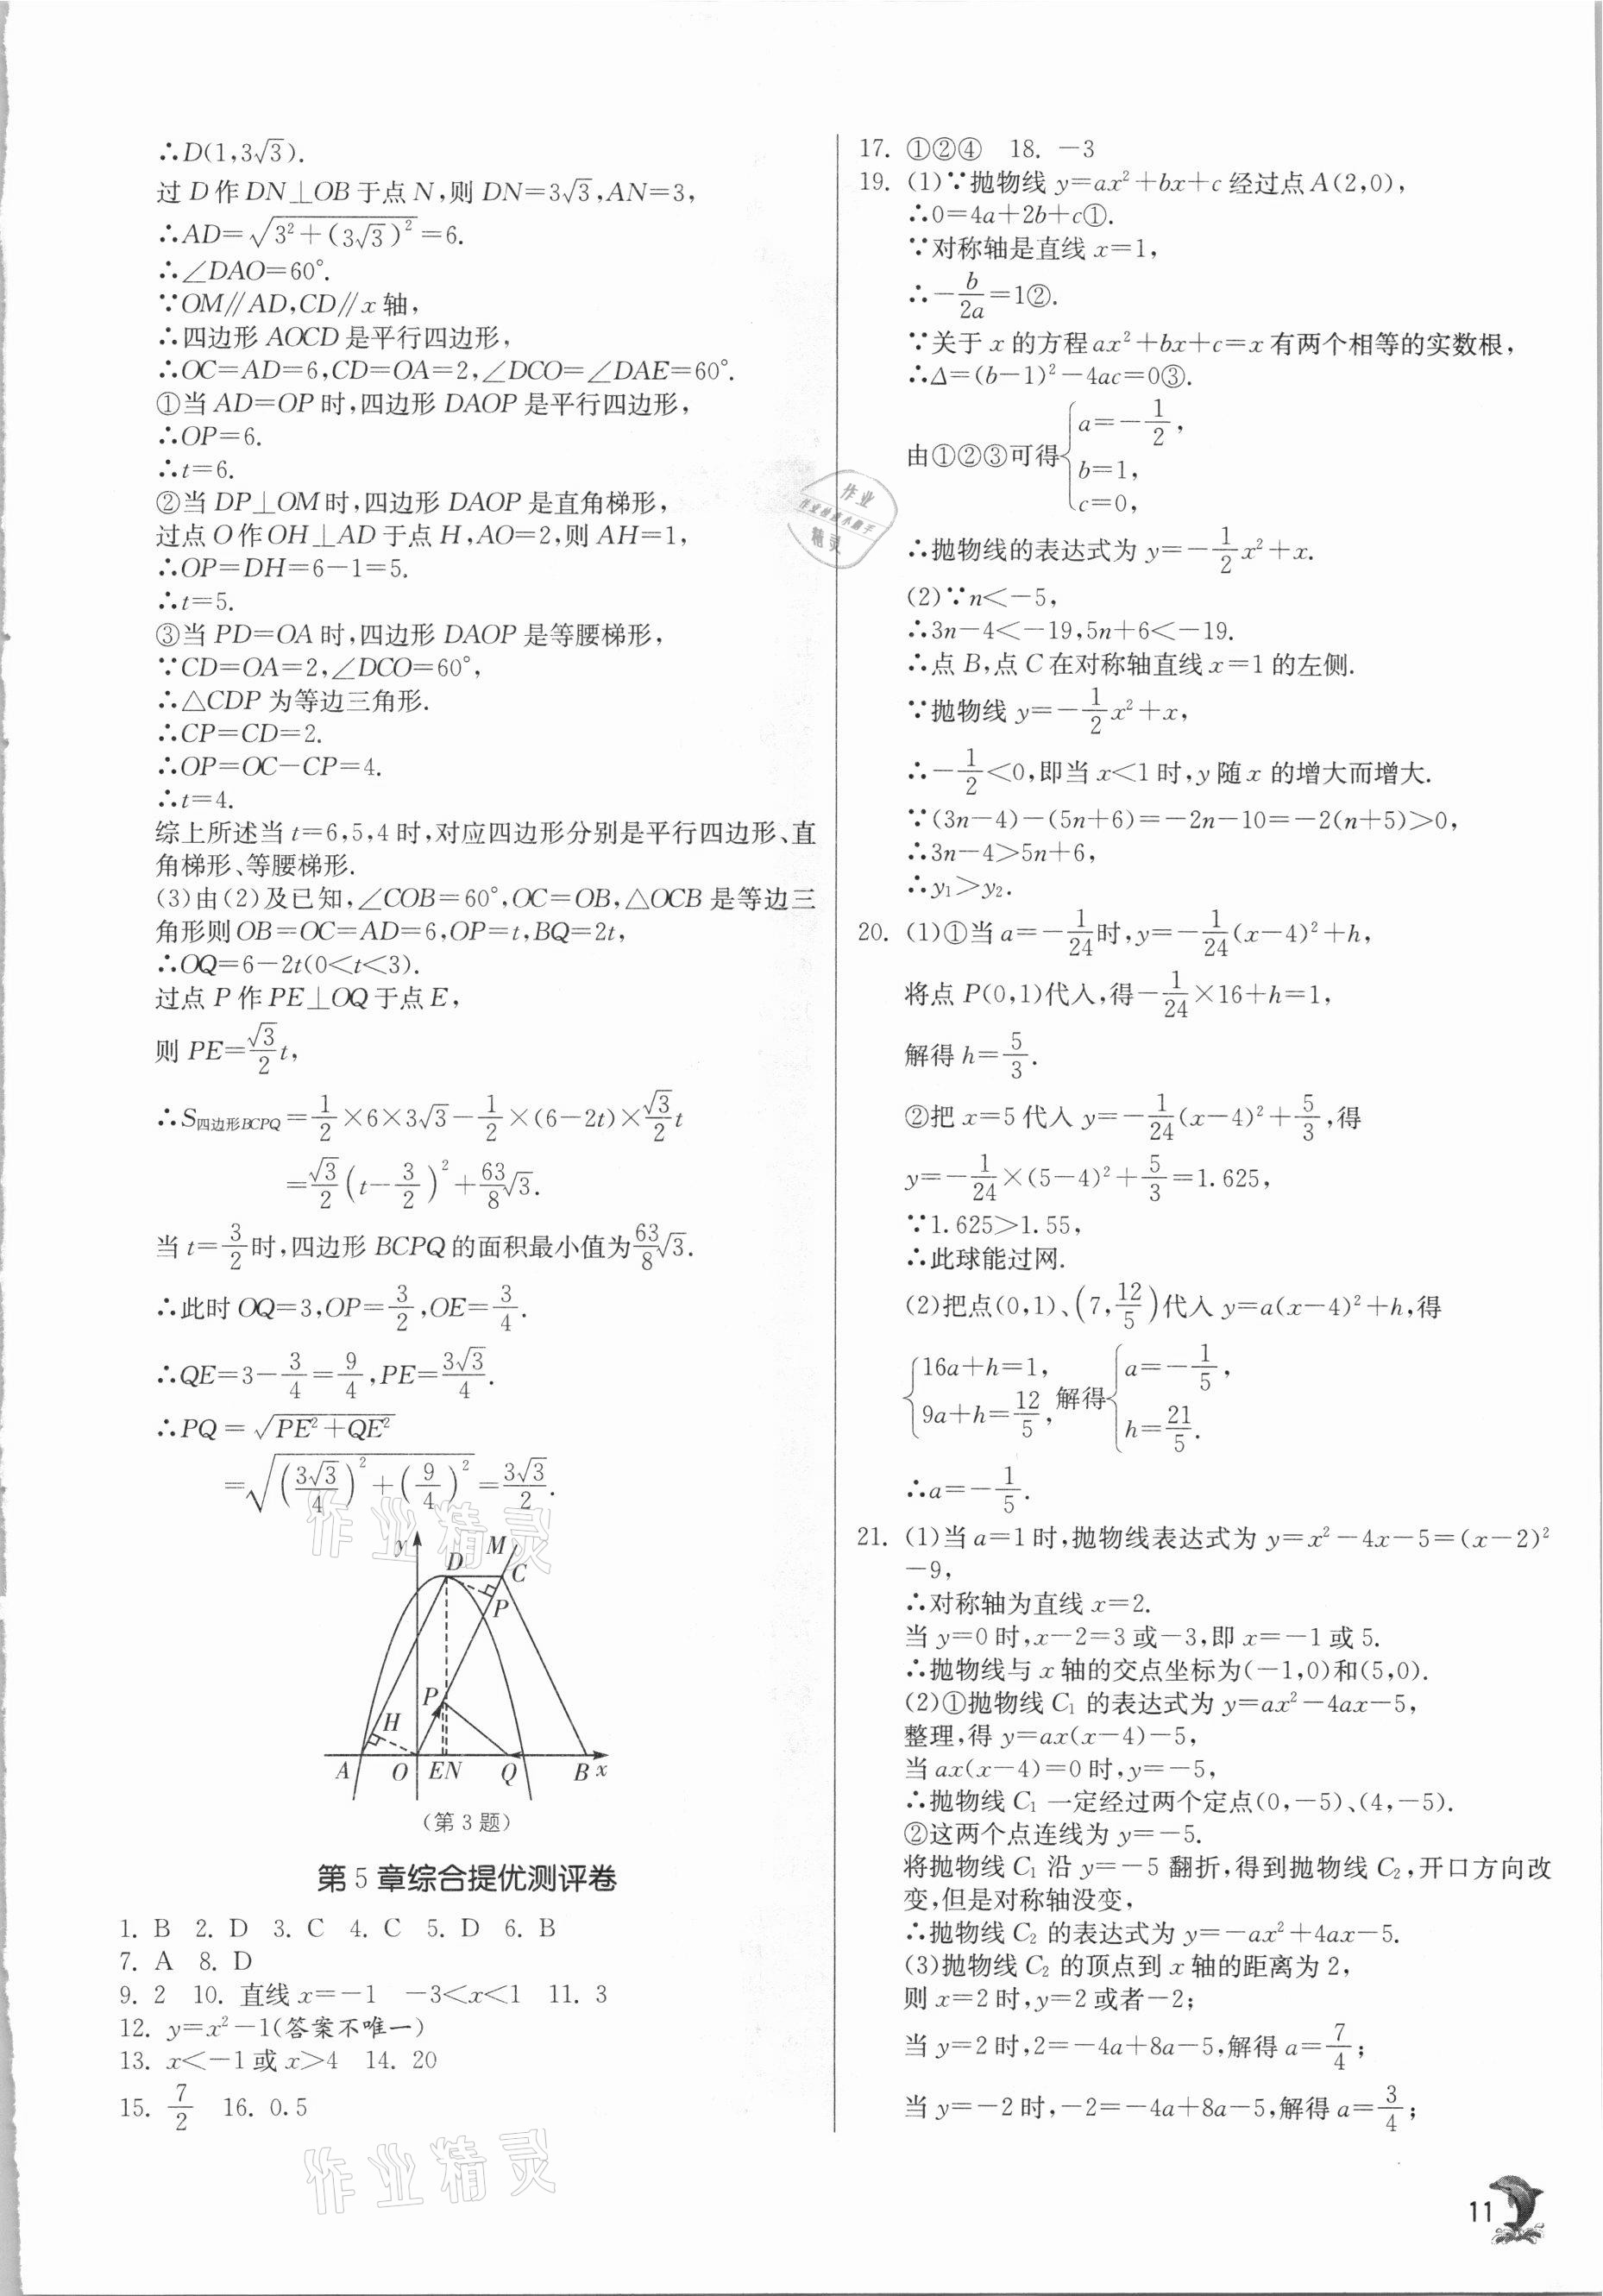 ∴D(1,3√3).
过 D 作 DN⊥OB 于点 N,则 DN=3√3,AN=3,
∴AD=√(3²+(3√3)²)=6.
∴∠DAO=60°.
∵OM∥AD,CD∥x 轴,
∴四边形 AOCD 是平行四边形,
∴OC=AD=6,CD=OA=2,∠DCO=∠DAE=60°.
①当 AD=OP 时,四边形 DAOP 是平行四边形,
∴OP=6.
∴t=6.
②当 DP⊥OM 时,四边形 DAOP 是直角梯形,
过点 O 作 OH⊥AD 于点 H,AO=2,则 AH=1,
∴OP=DH=6-1=5.
∴t=5.
③当 PD=OA 时,四边形 DAOP 是等腰梯形,
∵CD=OA=2,∠DCO=60°,
∴△CDP 为等边三角形.
∴CP=CD=2.
∴OP=OC-CP=4.
∴t=4.
综上所述当 t=6,5,4 时,对应四边形分别是平行四边形、直
角梯形、等腰梯形.
(3)由(2)及已知,∠COB=60°,OC=OB,△OCB 是等边三
角形则 OB=OC=AD=6,OP=t,BQ=2t,
∴OQ=6-2t(0<t<3).
过点 P 作 PE⊥OQ 于点 E,
则 PE=√3/2 t,
∴S四边形BCPQ=1/2×6×3√3-1/2×(6-2t)×√3/2 t
=√3/2(t-3/2)²+63/8√3.
当 t=3/2时,四边形 BCPQ 的面积最小值为63/8√3.
∴此时 OQ=3,OP=3/2,OE=3/4.
∴QE=3-3/4=9/4,PE=3√3/4.
∴PQ=√(PE²+QE²)
=√((3√3/4)²+(9/4)²)=3√3/2.
y M
D C
P
P
H
A O EN Q B x
(第 3 题)
第 5 章综合提优测评卷
1. B 2. D 3. C 4. C 5. D 6. B
7. A 8. D
9. 2 10. 直线 x=-1 -3<x<1 11. 3
12. y=x²-1(答案不唯一)
13. x<-1 或 x>4 14. 20
15. 7/2 16. 0.5
17. ①②④ 18. -3
19. (1)∵抛物线 y=ax²+bx+c 经过点 A(2,0),
∴0=4a+2b+c①.
∵对称轴是直线 x=1,
∴-b/2a=1②.
∵关于 x 的方程 ax²+bx+c=x 有两个相等的实数根,
∴Δ=(b-1)²-4ac=0③.
由①②③可得{a=-1/2,
b=1,
c=0,
∴抛物线的表达式为 y=-1/2x²+x.
(2)∵n<-5,
∴3n-4<-19,5n+6<-19.
∴点 B,点 C 在对称轴直线 x=1 的左侧.
∵抛物线 y=-1/2x²+x,
∴-1/2<0,即当 x<1 时,y 随 x 的增大而增大.
∵(3n-4)-(5n+6)=-2n-10=-2(n+5)>0,
∴3n-4>5n+6,
∴y₁>y₂.
20. (1)①当 a=-1/24时,y=-1/24(x-4)²+h,
将点 P(0,1)代入,得-1/24×16+h=1,
解得 h=5/3.
②把 x=5 代入 y=-1/24(x-4)²+5/3,得
y=-1/24×(5-4)²+5/3=1.625,
∵1.625>1.55,
∴此球能过网.
(2)把点(0,1)、(7,12/5)代入 y=a(x-4)²+h,得
{16a+h=1, 9a+h=12/5, 解得{a=-1/5, h=21/5.
∴a=-1/5.
21. (1)当 a=1 时,抛物线表达式为 y=x²-4x-5=(x-2)²
-9,
∴对称轴为直线 x=2.
当 y=0 时,x-2=3 或-3,即 x=-1 或 5.
∴抛物线与 x 轴的交点坐标为(-1,0)和(5,0).
(2)①抛物线 C₁ 的表达式为 y=ax²-4ax-5,
整理,得 y=ax(x-4)-5,
当 ax(x-4)=0 时,y=-5,
∴抛物线 C₁ 一定经过两个定点(0,-5)、(4,-5).
②这两个点连线为 y=-5.
将抛物线 C₁ 沿 y=-5 翻折,得到抛物线 C₂,开口方向改
变,但是对称轴没变,
∴抛物线 C₂ 的表达式为 y=-ax²+4ax-5.
(3)抛物线 C₂ 的顶点到 x 轴的距离为 2,
则 x=2 时,y=2 或者-2;
当 y=2 时,2=-4a+8a-5,解得 a=7/4;
当 y=-2 时,-2=-4a+8a-5,解得 a=3/4;
11
作业精灵
作业精灵
作业
精灵